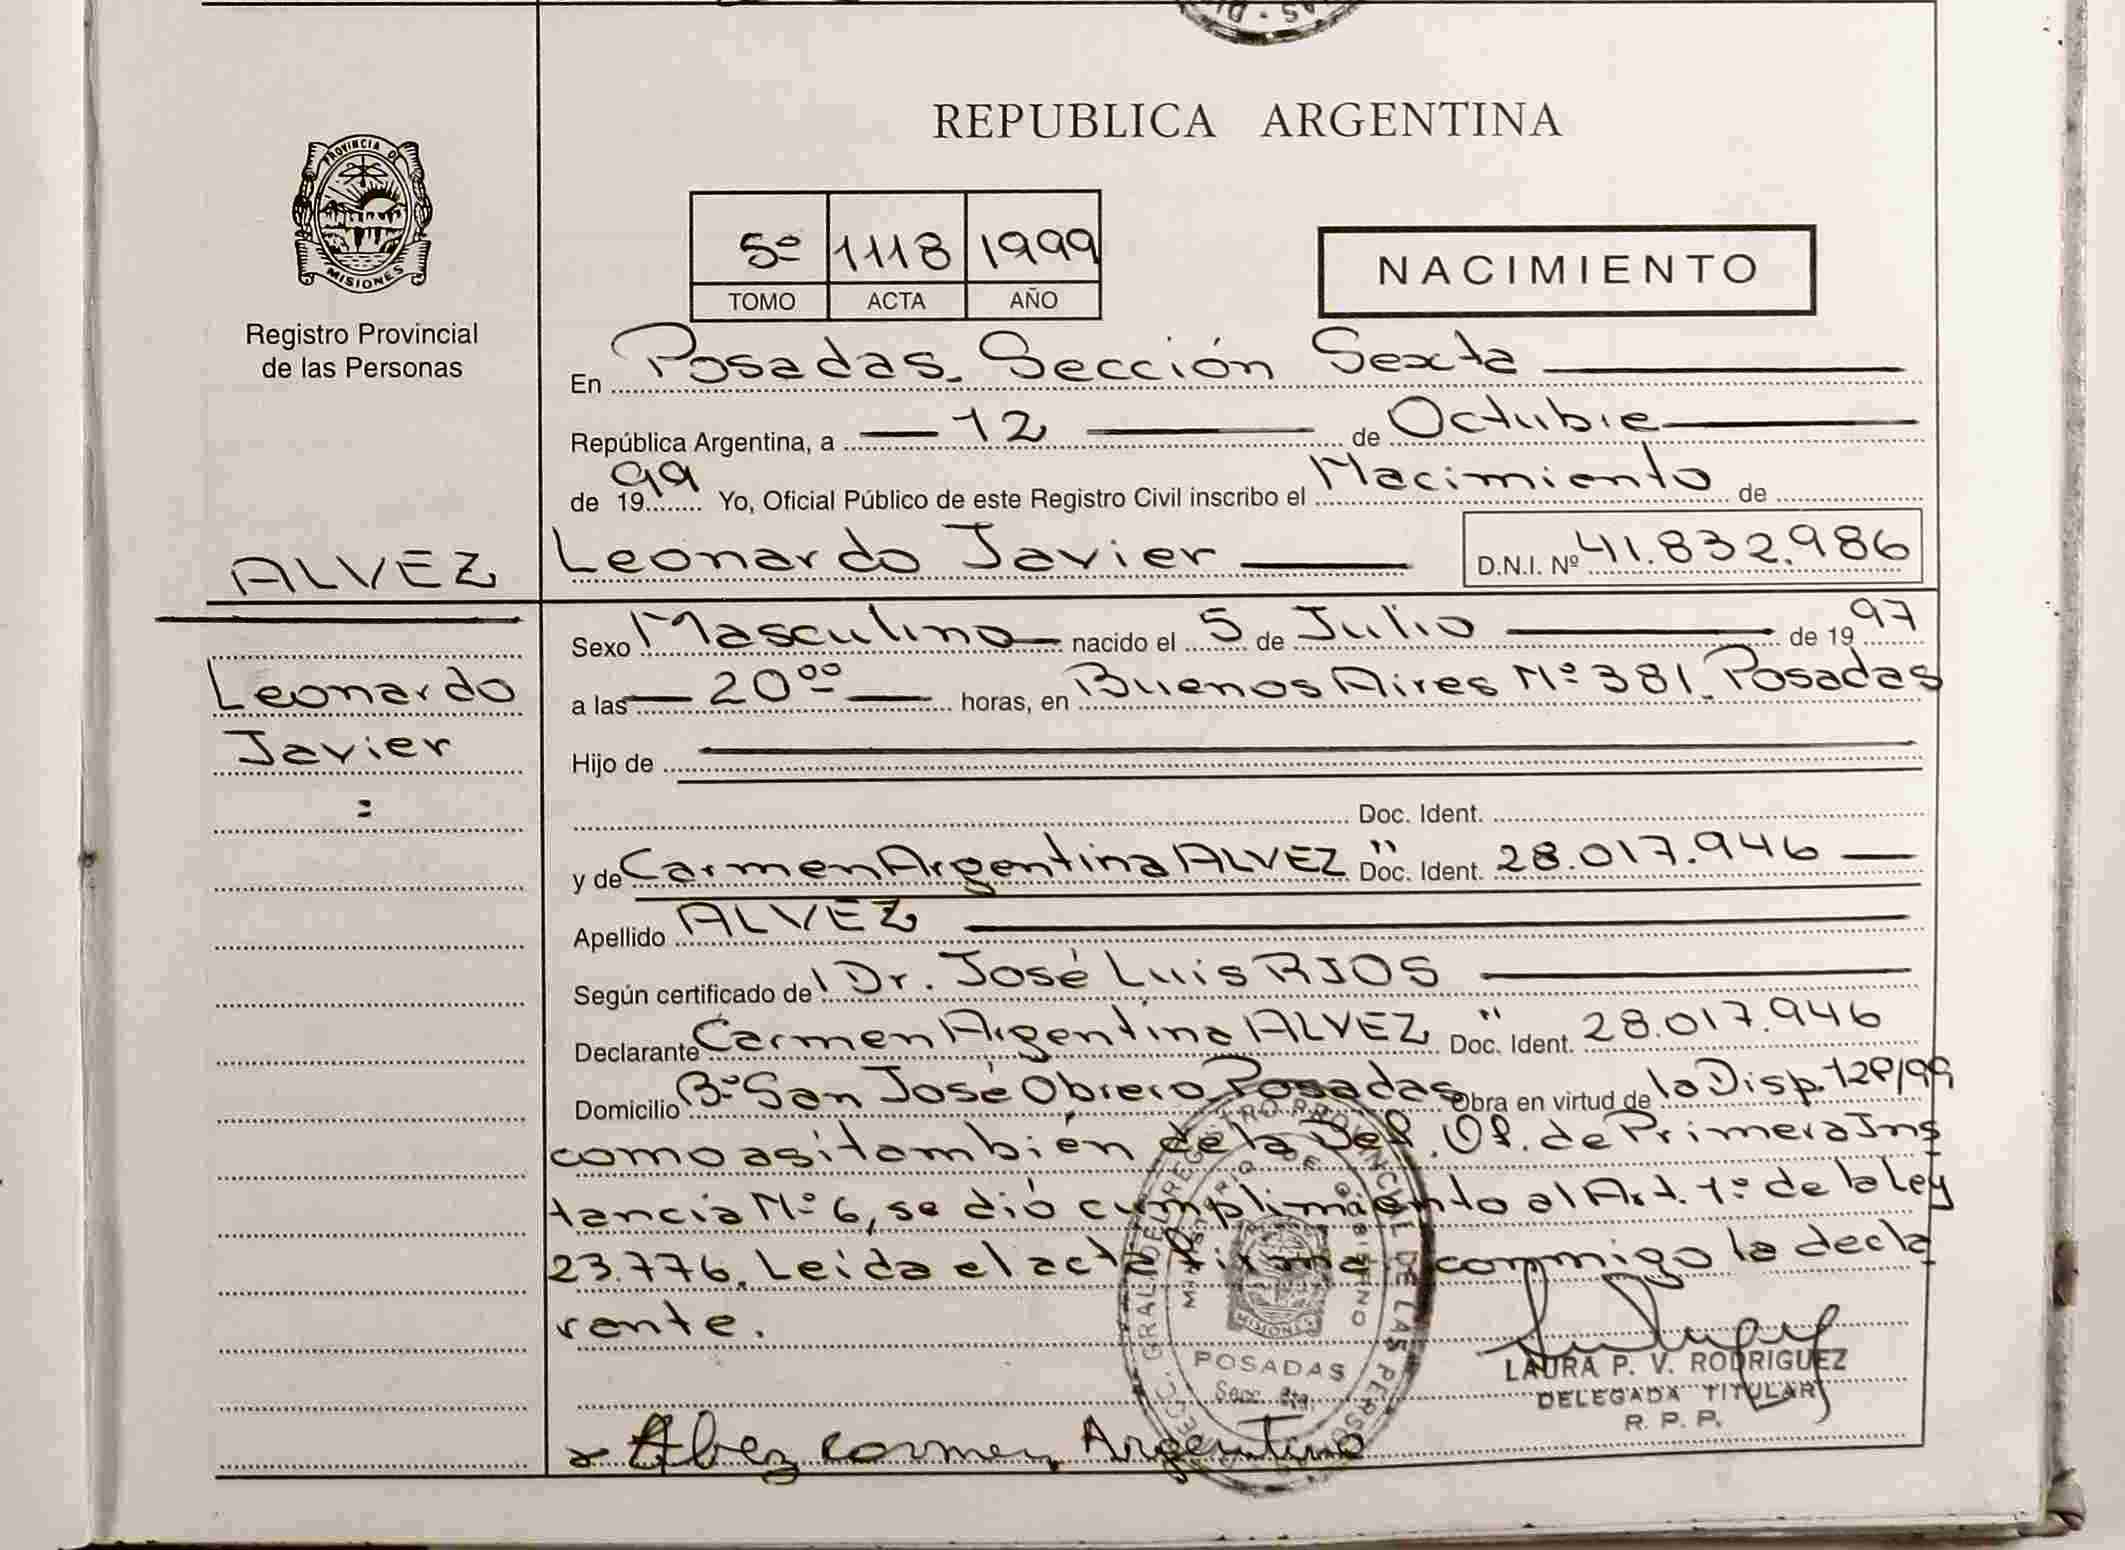 REPUBLICA ARGENTINA
PROVINCIA DE
MISIONES
Registro Provincial
de las Personas
5º 1118 1999
TOMO ACTA AÑO
NACIMIENTO
En Posadas. Sección Sexta
República Argentina, a 12 de Octubre
de 1999 Yo, Oficial Público de este Registro Civil inscribo el Nacimiento de
ALVEZ
Leonardo
Javier
Leonardo Javier D.N.I. Nº 41.832.986
Sexo Masculino nacido el 5 de Julio de 1997
a las 20ºº horas, en Buenos Aires Nº 381. Posadas
Hijo de
Doc. Ident.
y de Carmen Argentina ALVEZ " Doc. Ident. 28.017.946
Apellido ALVEZ
Según certificado de l Dr. José Luis RIOS
Declarante Carmen Argentina ALVEZ " Doc. Ident. 28.017.946
Domicilio Bº San José Obrero Posadas Obra en virtud de la Disp. /99
como asi también de la Def. Of. de Primera Ins
tancia Nº 6, se dió cumplimiento al Art. 1º de la Ley
23.776. Leída el acta firma conmigo la decla
rante.
DIREC. GRAL DEL REGISTRO PROVINCIAL DE LAS PERSONAS
MINISTERIO DE GOBIERNO
MISIONES
POSADAS
Secc. 6ta.
LAURA P. V. RODRIGUEZ
DELEGADA TITULAR
R. P. P.
x Alvez Carmen Argentina